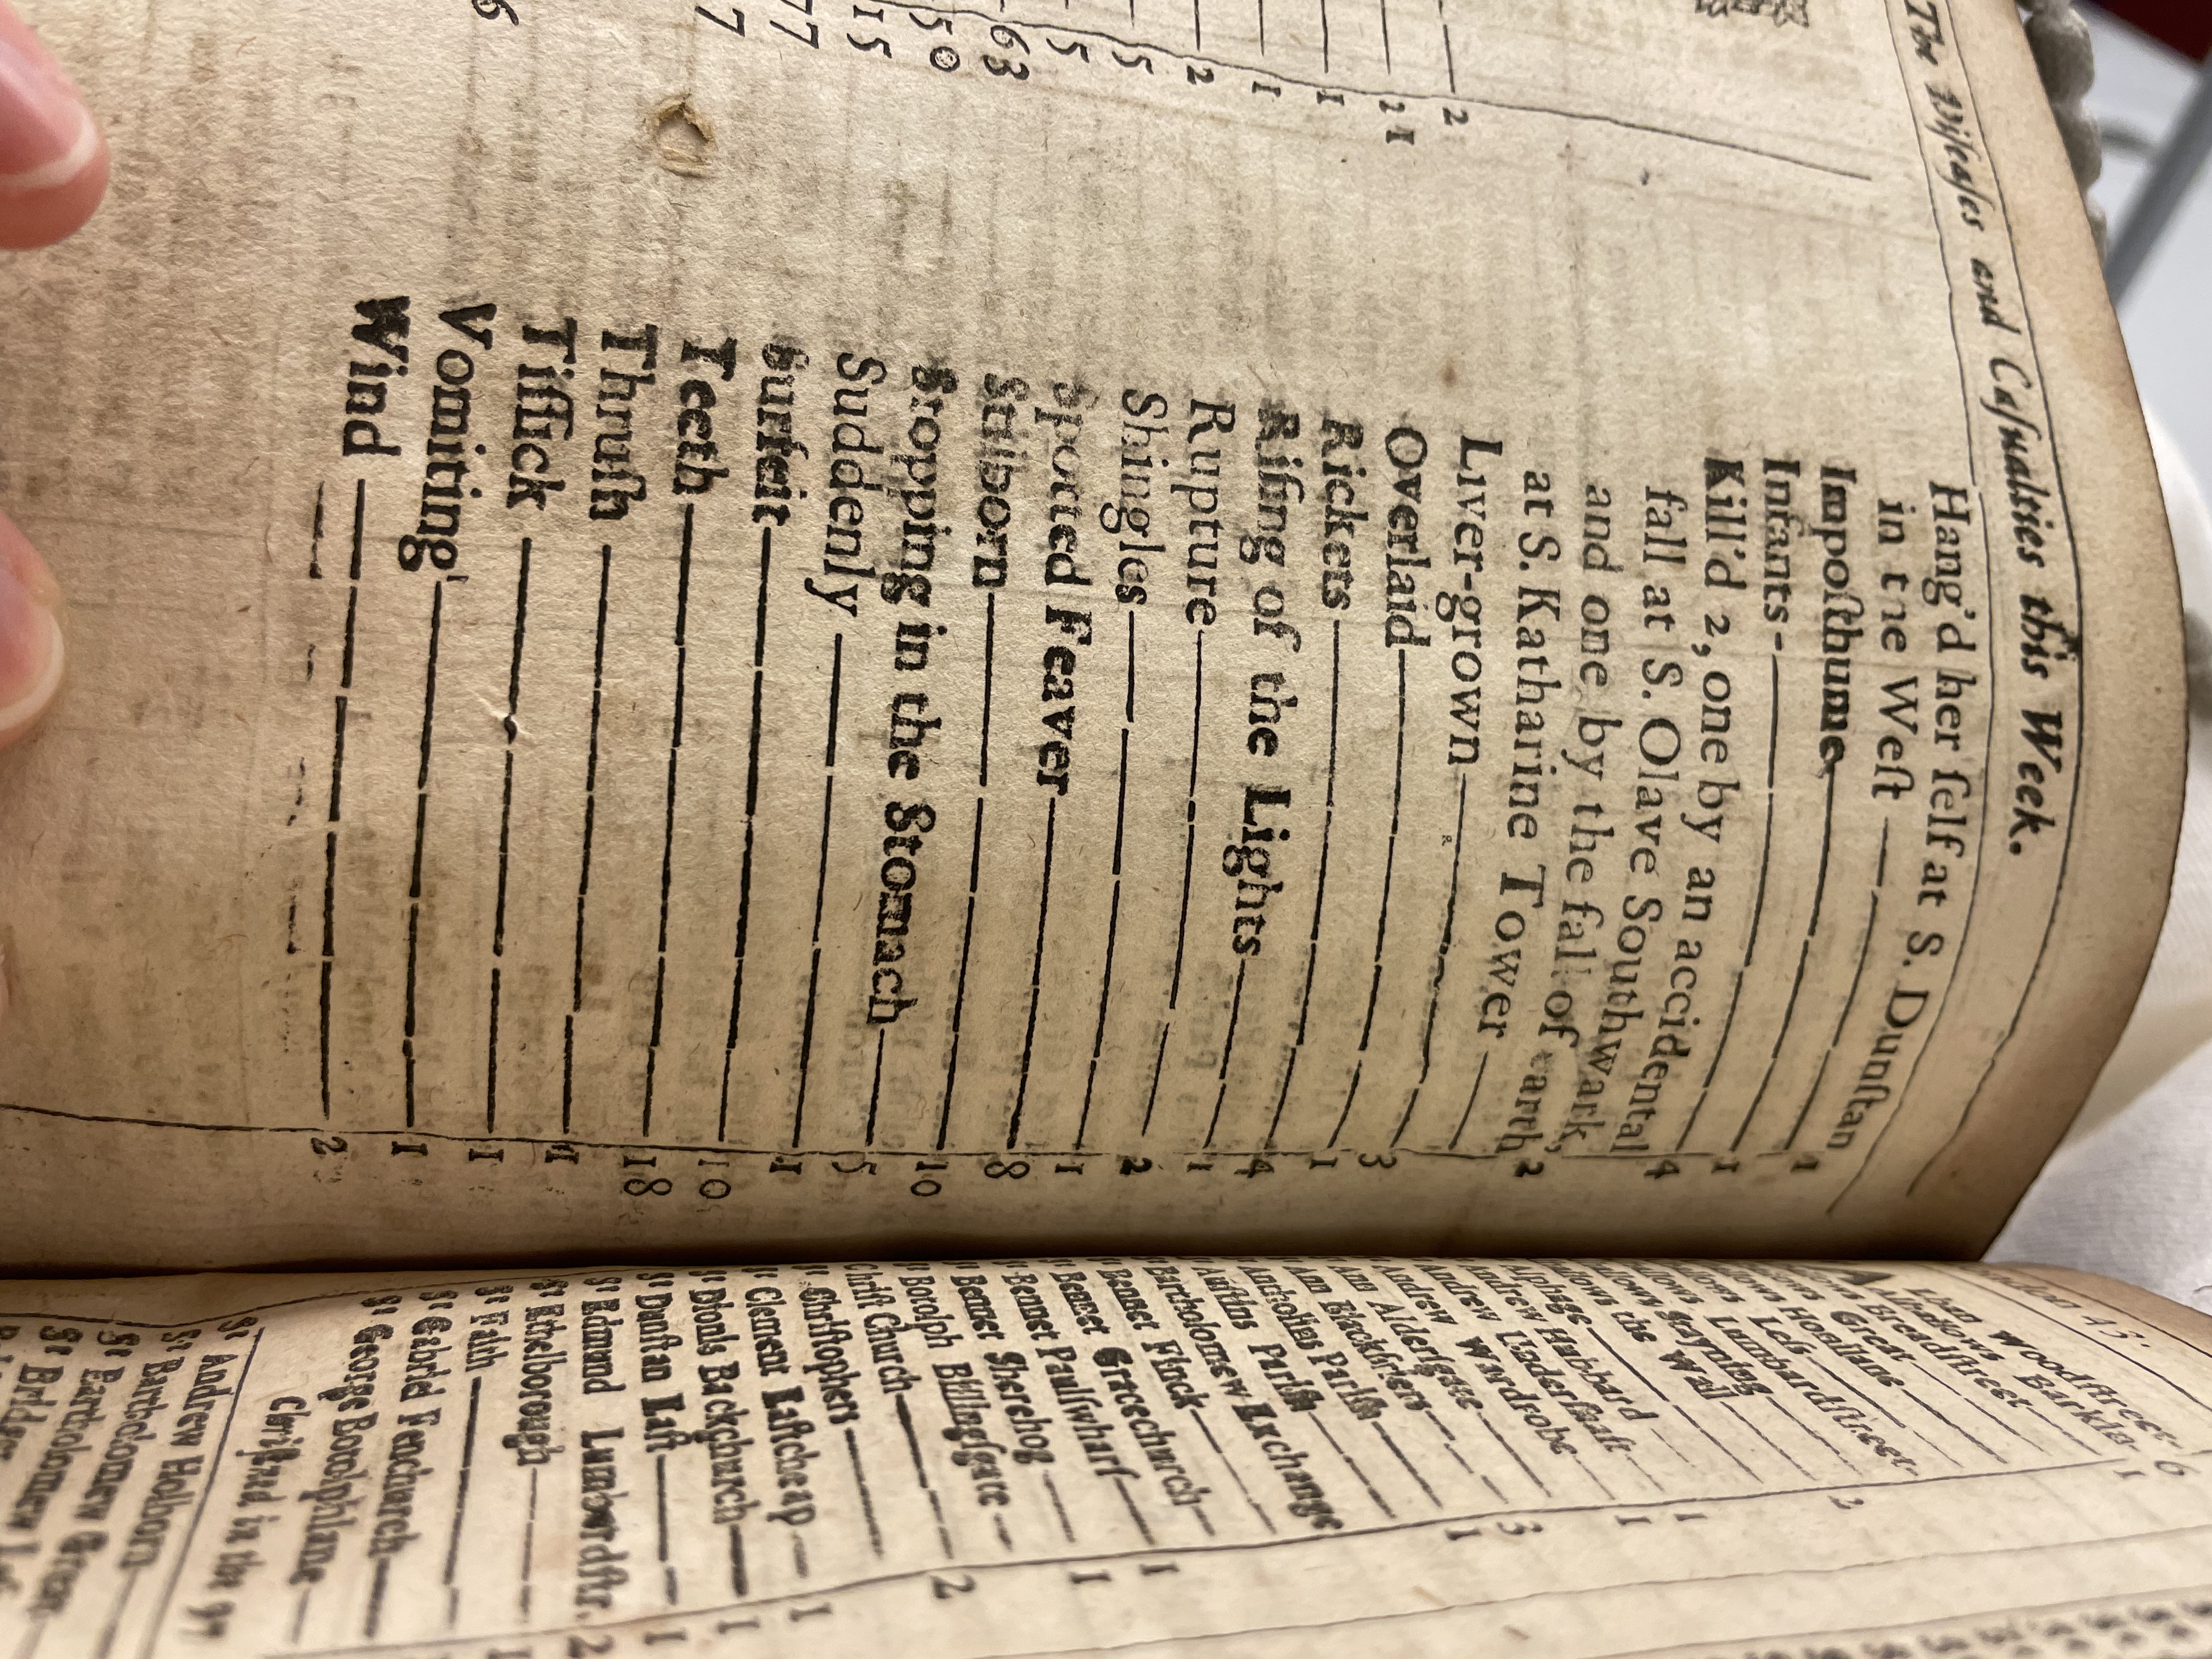 The Diſeaſes and Caſualties this Week.
2
21
1
1
2
5
5
63
50
15
77
7
6
Hang'd her ſelf at S. Dunſtan
in the Weſt —— 1
Impoſthume —— 1
Infants —— 4
Kill'd 2, one by an accidental
fall at S. Olave Southwark,
and one by the fall of earth
at S. Katharine Tower —— 2
Liver-grown ——
Overlaid —— 3
Rickets —— 1
Riſing of the Lights —— 4
Rupture —— 1
Shingles —— 2
Spotted Feaver —— 1
Stilborn —— 8
Stopping in the Stomach —— 10
Suddenly —— 5
Surfeit —— 1
Teeth —— 10
Thruſh —— 18
Tiſſick —— 1
Vomiting —— 1
Wind —— 2
Woodſtreet- 6
Barkin- 1
Breadſtreet
Great
Honilane
Leſs
Lumbardſtreet- 2
Stayning
the Wall
Alphage — 1
Andrew Hubbard — 1
Andrew Underſhaft
Andrew Wardrobe — 3
Ann Alderſgate — 1
Ann Blackfriers
Antholins Pariſh
Auſtins Pariſh
Bartholomew Exchange
Bennet Finck
Bennet Gracechurch — 1
Bennet Paulſwharf — 1
Bennet Sherehog
Botolph Billingſgate
Chriſt Church — 2
St Chriſtophers
St Clement Eaſtcheap — 1
St Dionis Backchurch — 1
St Dunſtan Eaſt — 1
St Edmund Lumbardſtr. 2
St Ethelborough
St Faith
St Gabriel Fenchurch
St George Botolphlane
Chriſtned in the 97
St Andrew Holborn
St Bartholomew Great
St Bartholomew Leſ
St Bridget